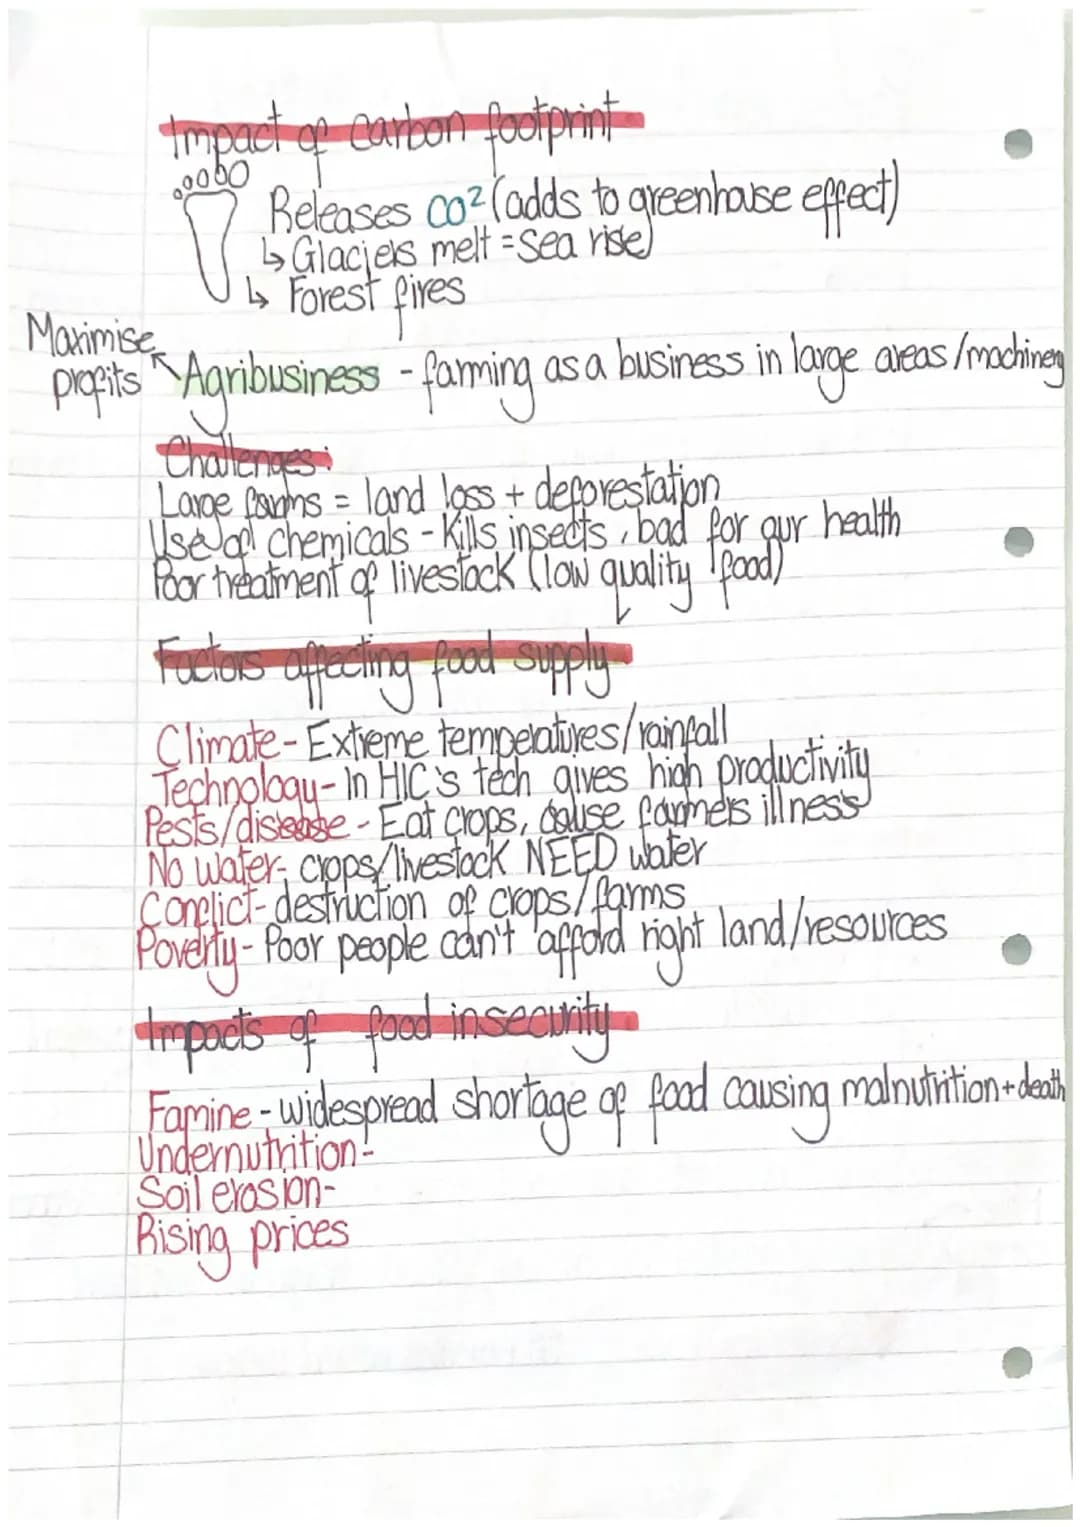 Impact of carbon footprint
Releases CO² (adds to greenhouse effect)
↳ Glaciers melt = Sea rise)
↳ Forest fires
Maximise
profits
Agribusiness - farming as a business in large areas/machinery
Challenges:
Large farms = land loss + deforestation
Use of chemicals - Kills insects, bad for our health
Poor treatment of livestock (low quality food)
Factors affecting food supply
Climate - Extreme temperatures/rainfall
Technology - In HIC's tech gives high productivity
Pests/disease - Eat crops, cause farmers illness
No water - crops/livestock NEED water
Conflict - destruction of crops/farms
Poverty - Poor people can't afford right land/resources
Impacts of food insecurity
Famine - widespread shortage of food causing malnutrition + death
Undernutrition -
Soil erosion -
Rising prices